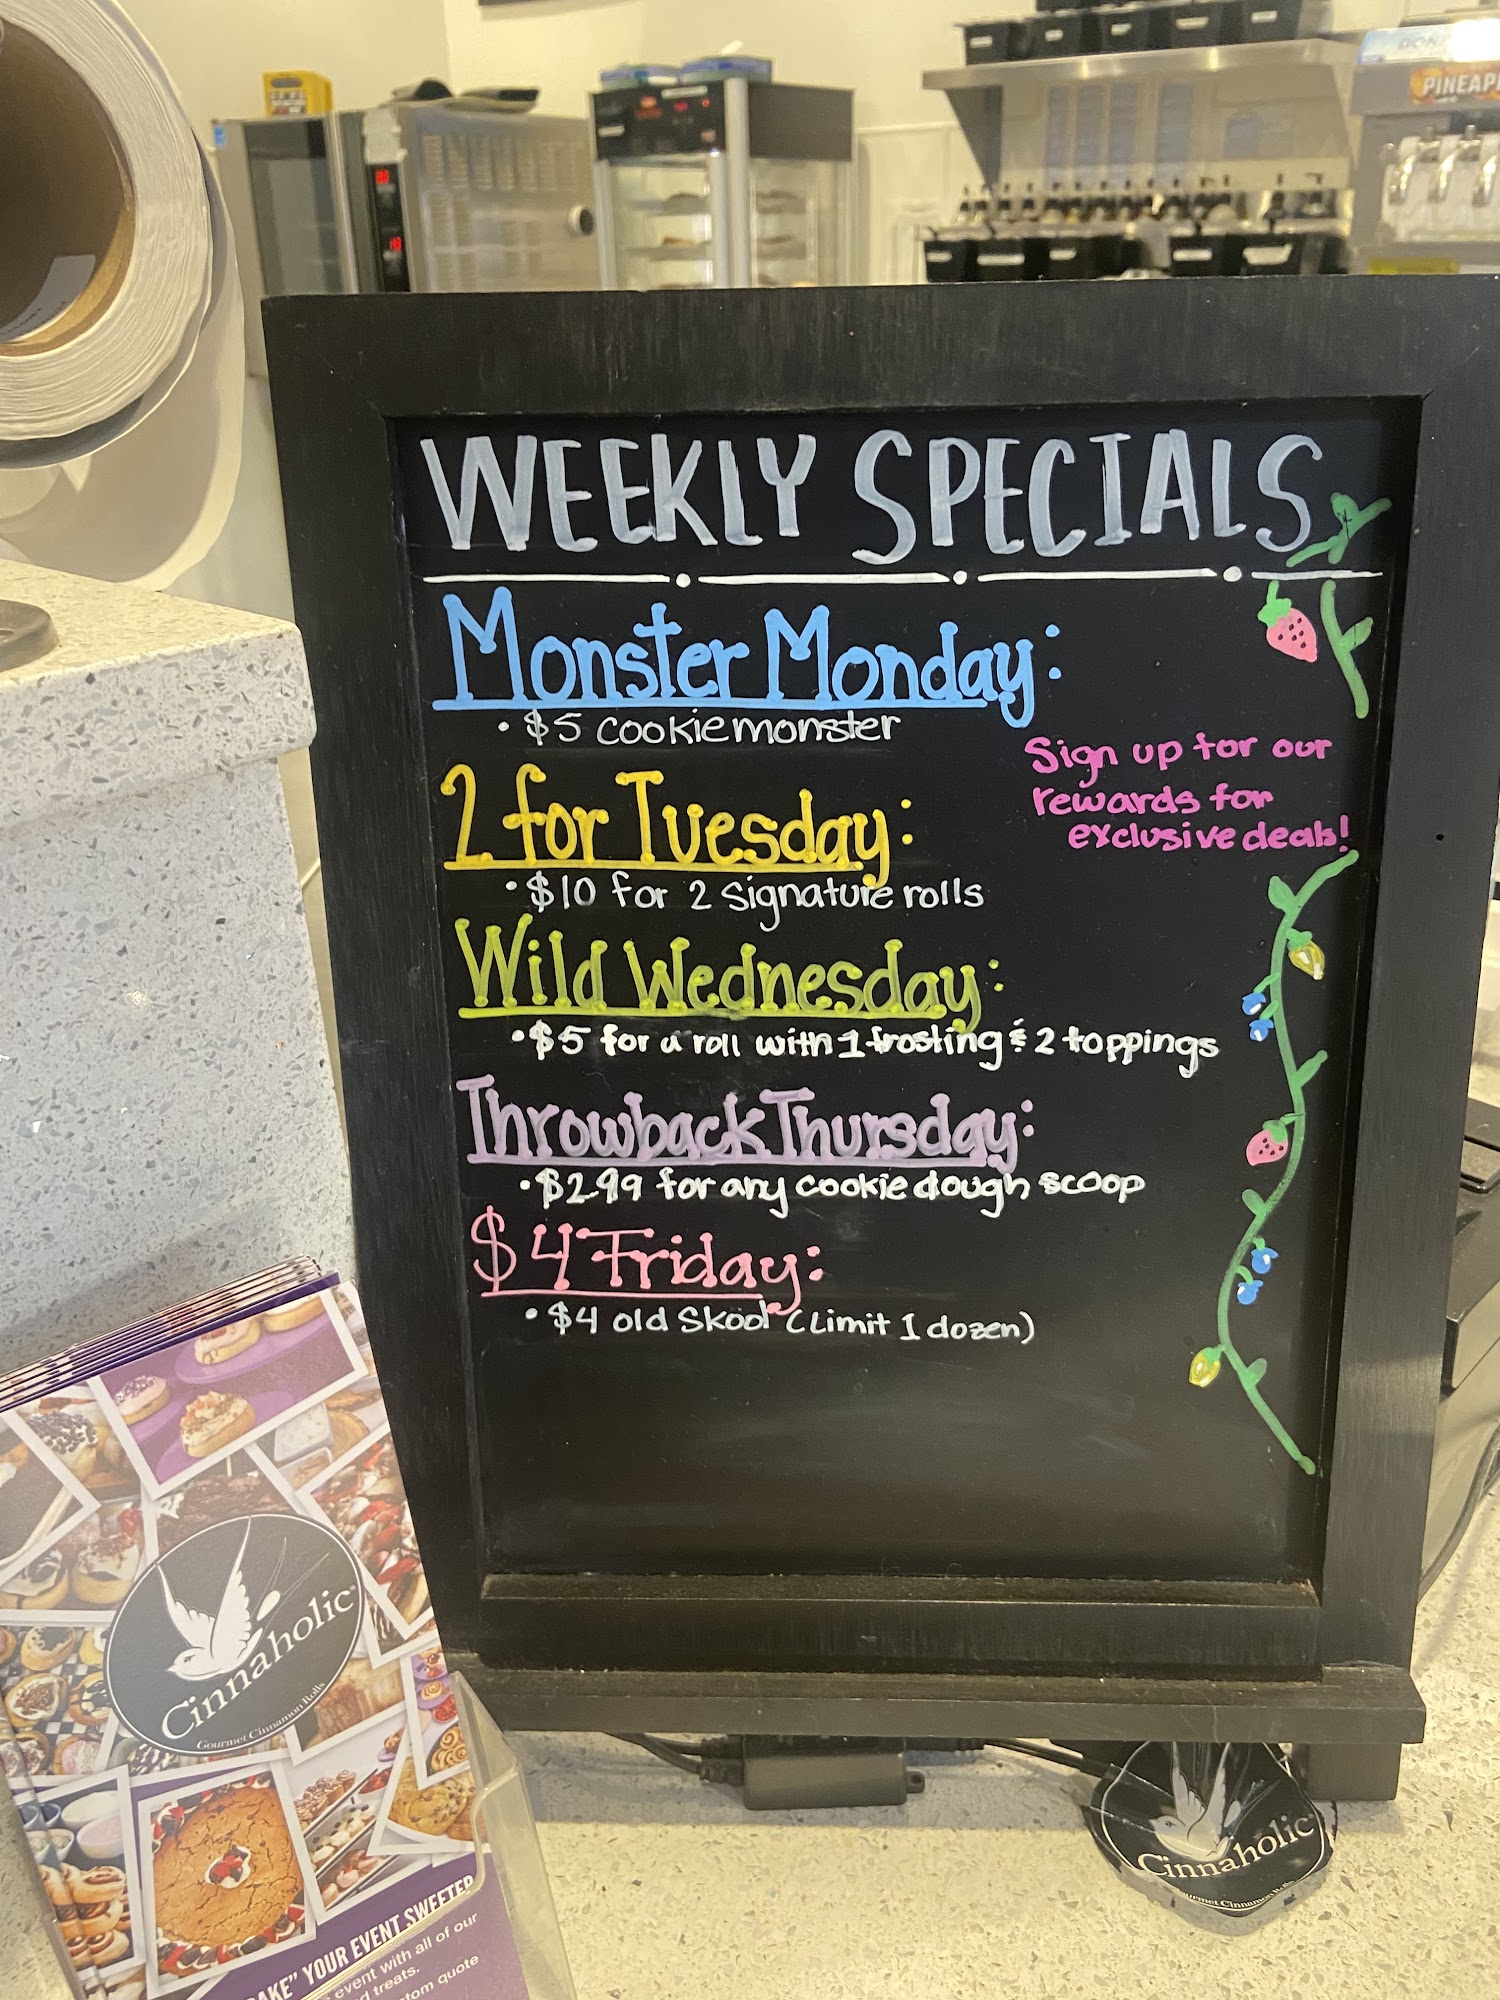 PINEAP
WEEKLY SPECIALS
Monster Monday:
• $5 cookie monster
Sign up for our
rewards for
exclusive deals!
2 for Tuesday:
• $10 for 2 Signature rolls
Wild Wednesday:
• $5 for a roll with 1 frosting & 2 toppings
Throwback Thursday:
• $2.99 for any cookie dough scoop
$4 Friday:
• $4 old Skool (Limit 1 dozen)
Cinnaholic
Gourmet Cinnamon Rolls
AKE" YOUR EVENT SWEETER
event with all of our
treats.
tom quote
Cinnaholic
Gourmet Cinnamon Rolls